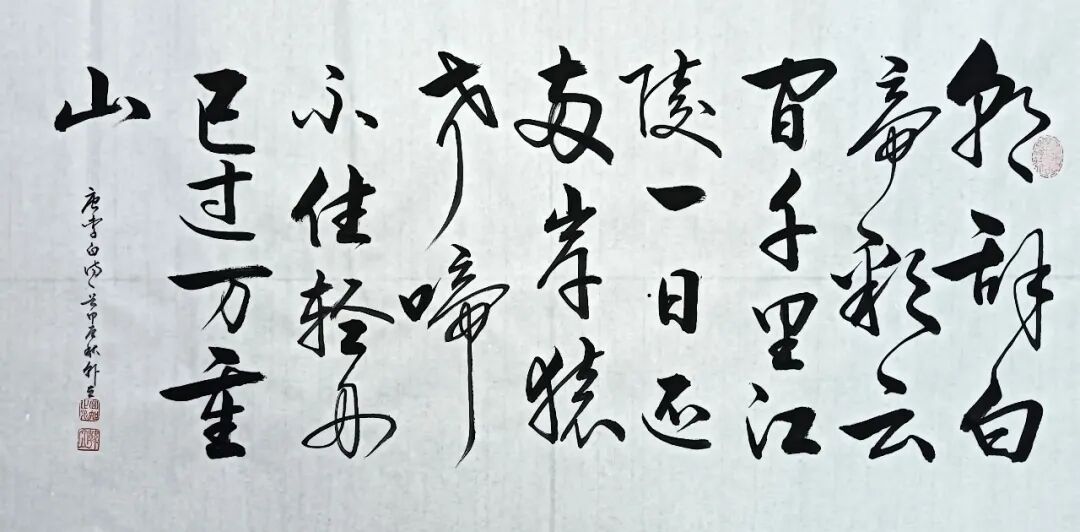 朝辞白
帝彩云
间千里江
陵一日还
两岸猿
声啼
不住轻舟
已过万重
山
唐李白诗